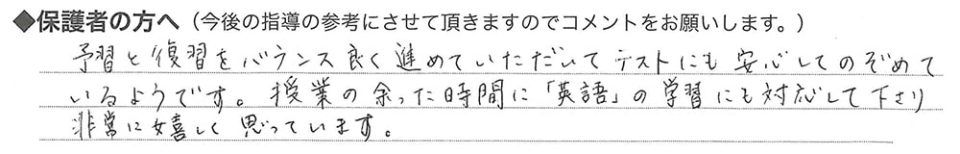 ◆保護者の方へ（今後の指導の参考にさせて頂きますのでコメントをお願いします。）
予習と復習をバランス良く進めていただいてテストにも安心してのぞめて
いるようです。授業の余った時間に「英語」の学習にも対応して下さり
非常に嬉しく思っています。